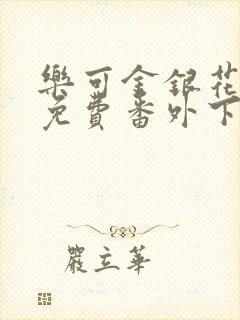 樂可金銀花
免費番外下
嚴立華